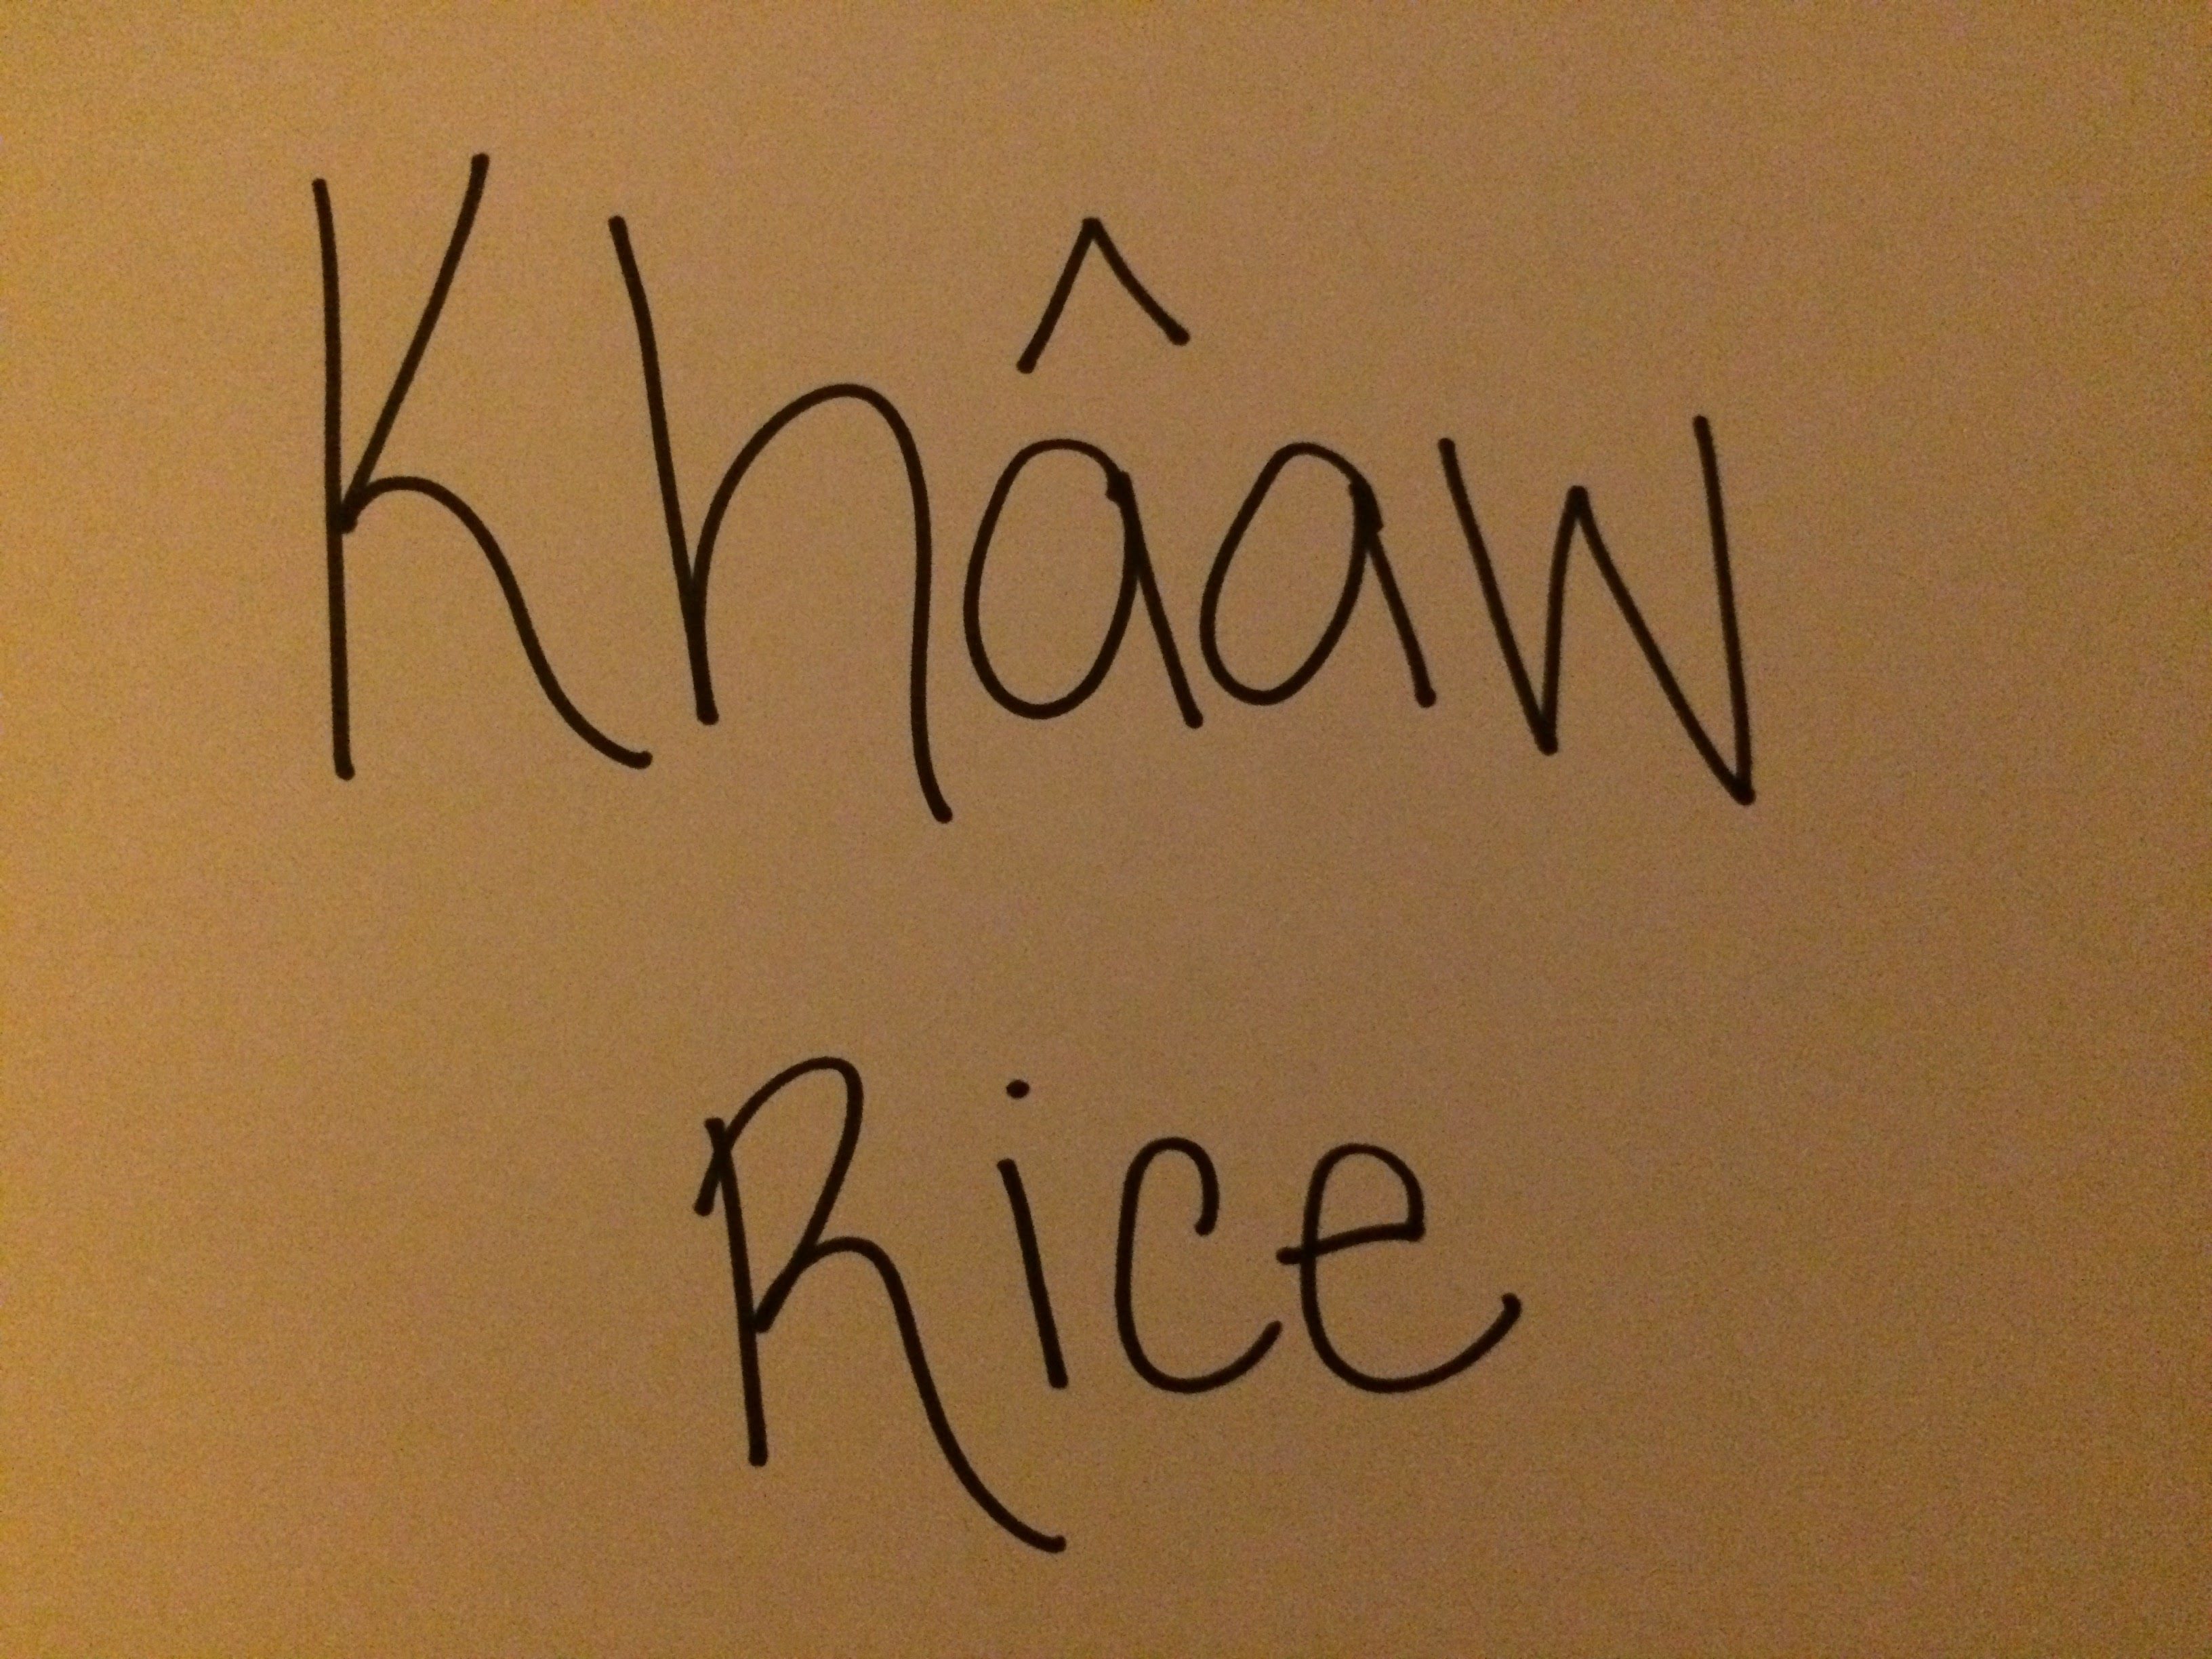 Khâaw
Rice